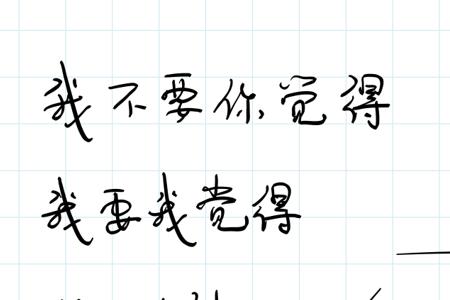 我不要你觉得
我要我觉得